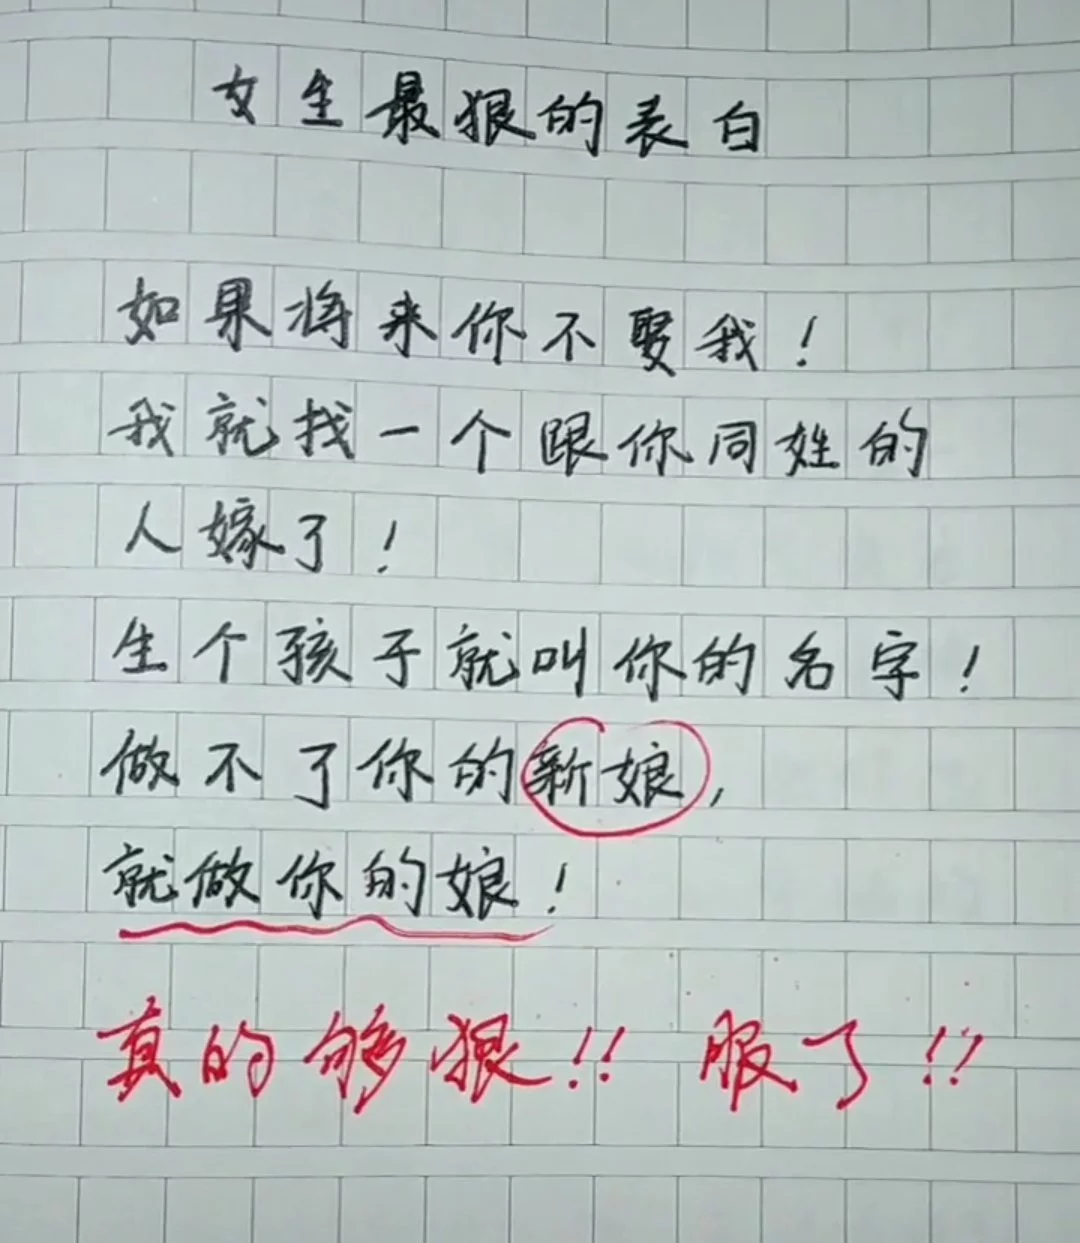 女生最狠的表白
如果将来你不娶我！
我就找一个跟你同姓的
人嫁了！
生个孩子就叫你的名字！
做不了你的新娘，
就做你的娘！
真的够狠！！服了！！